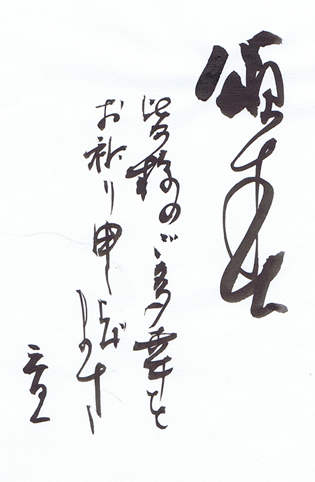 頌春
皆様のご多幸を
お祈り申し上げます